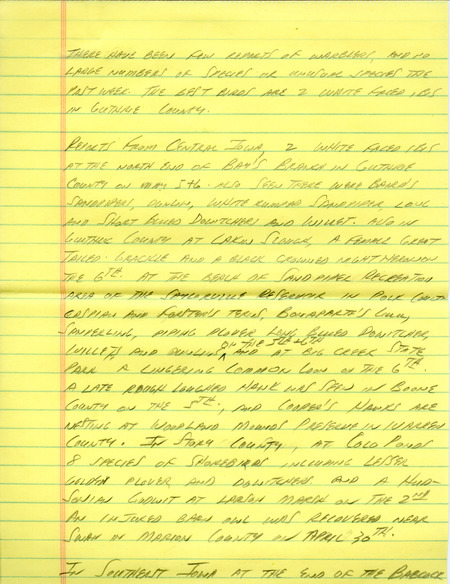 THERE HAVE BEEN FEW REPORTS OF WARBLERS, AND NO
LARGE NUMBERS OF SPECIES OR UNUSUAL SPECIES THE
PAST WEEK. THE BEST BIRDS ARE 2 WHITE FACED IBIS
IN GUTHRIE COUNTY.
REPORTS FROM CENTRAL IOWA, 2 WHITE FACED IBIS
AT THE NORTH END OF BAY'S BRANCH IN GUTHRIE
COUNTY ON MAY 5+6. ALSO SEEN THERE WERE BAIRD'S
SANDPIPERS, DUNLIN, WHITE RUMPED SANDPIPER LONG
AND SHORT BILLED DOWITCHERS AND WILLET. ALSO IN
GUTHRIE COUNTY AT LAKIN SLOUGH, A FEMALE GREAT
TAILED GRACKLE AND A BLACK CROWNED NIGHT HERON ON
THE 6TH. AT THE BEACH OF SANDPIPER RECREATION
AREA OF THE SAYLORVILLE RESERVOIR IN POLK COUNTY
CASPIAN AND FORSTER'S TERNS, BONAPARTE'S GULL,
SANDERLING, PIPING PLOVER LONG BILLED DOWITCHER,
WILLETS AND DUNLIN ON THE 5TH +6TH AND AT BIG CREEK STATE
PARK A LINGERING COMMON LOON ON THE 6TH.
A LATE ROUGH LEGGED HAWK WAS SEEN IN BOONE
COUNTY ON THE 5TH, AND COOPER'S HAWKS ARE
NESTING AT WOODLAND MOUNDS PRESERVE IN WARREN
COUNTY. IN STORY COUNTY, AT COLO PONDS
8 SPECIES OF SHOREBIRDS INCLUDING LESSER
GOLDEN PLOVER AND DOWITCHERS AND A HUD-
SONIAN GODWIT AT LARSON MARSH ON THE 2ND
AN INJURED BARN OWL WAS RECOVERED NEAR
SWAN IN MARION COUNTY ON APRIL 30TH.
IN SOUTHEAST IOWA AT THE END OF THE BABCOCK